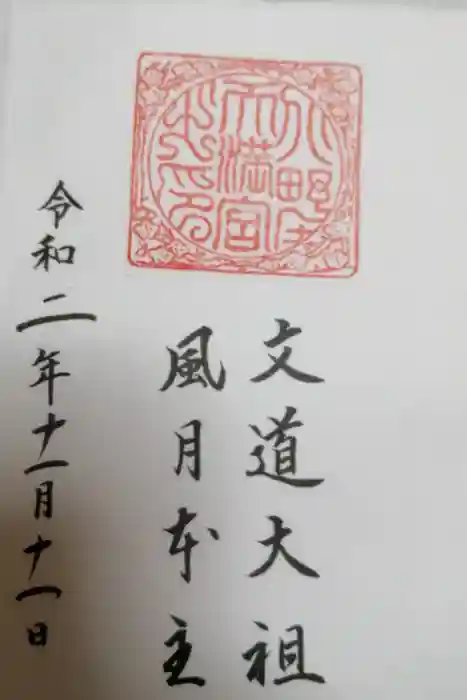 天満宮
文道大祖
風月本主
令和二年十一月十一日